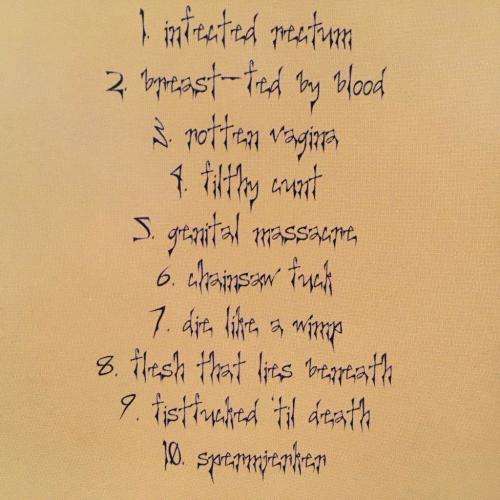 1. infected rectum
2. breast-fed by blood
3. rotten vagina
4. filthy cunt
5. genital massacre
6. chainsaw fuck
7. die like a wimp
8. flesh that lies beneath
9. fistfucked 'til death
10. spermjerker